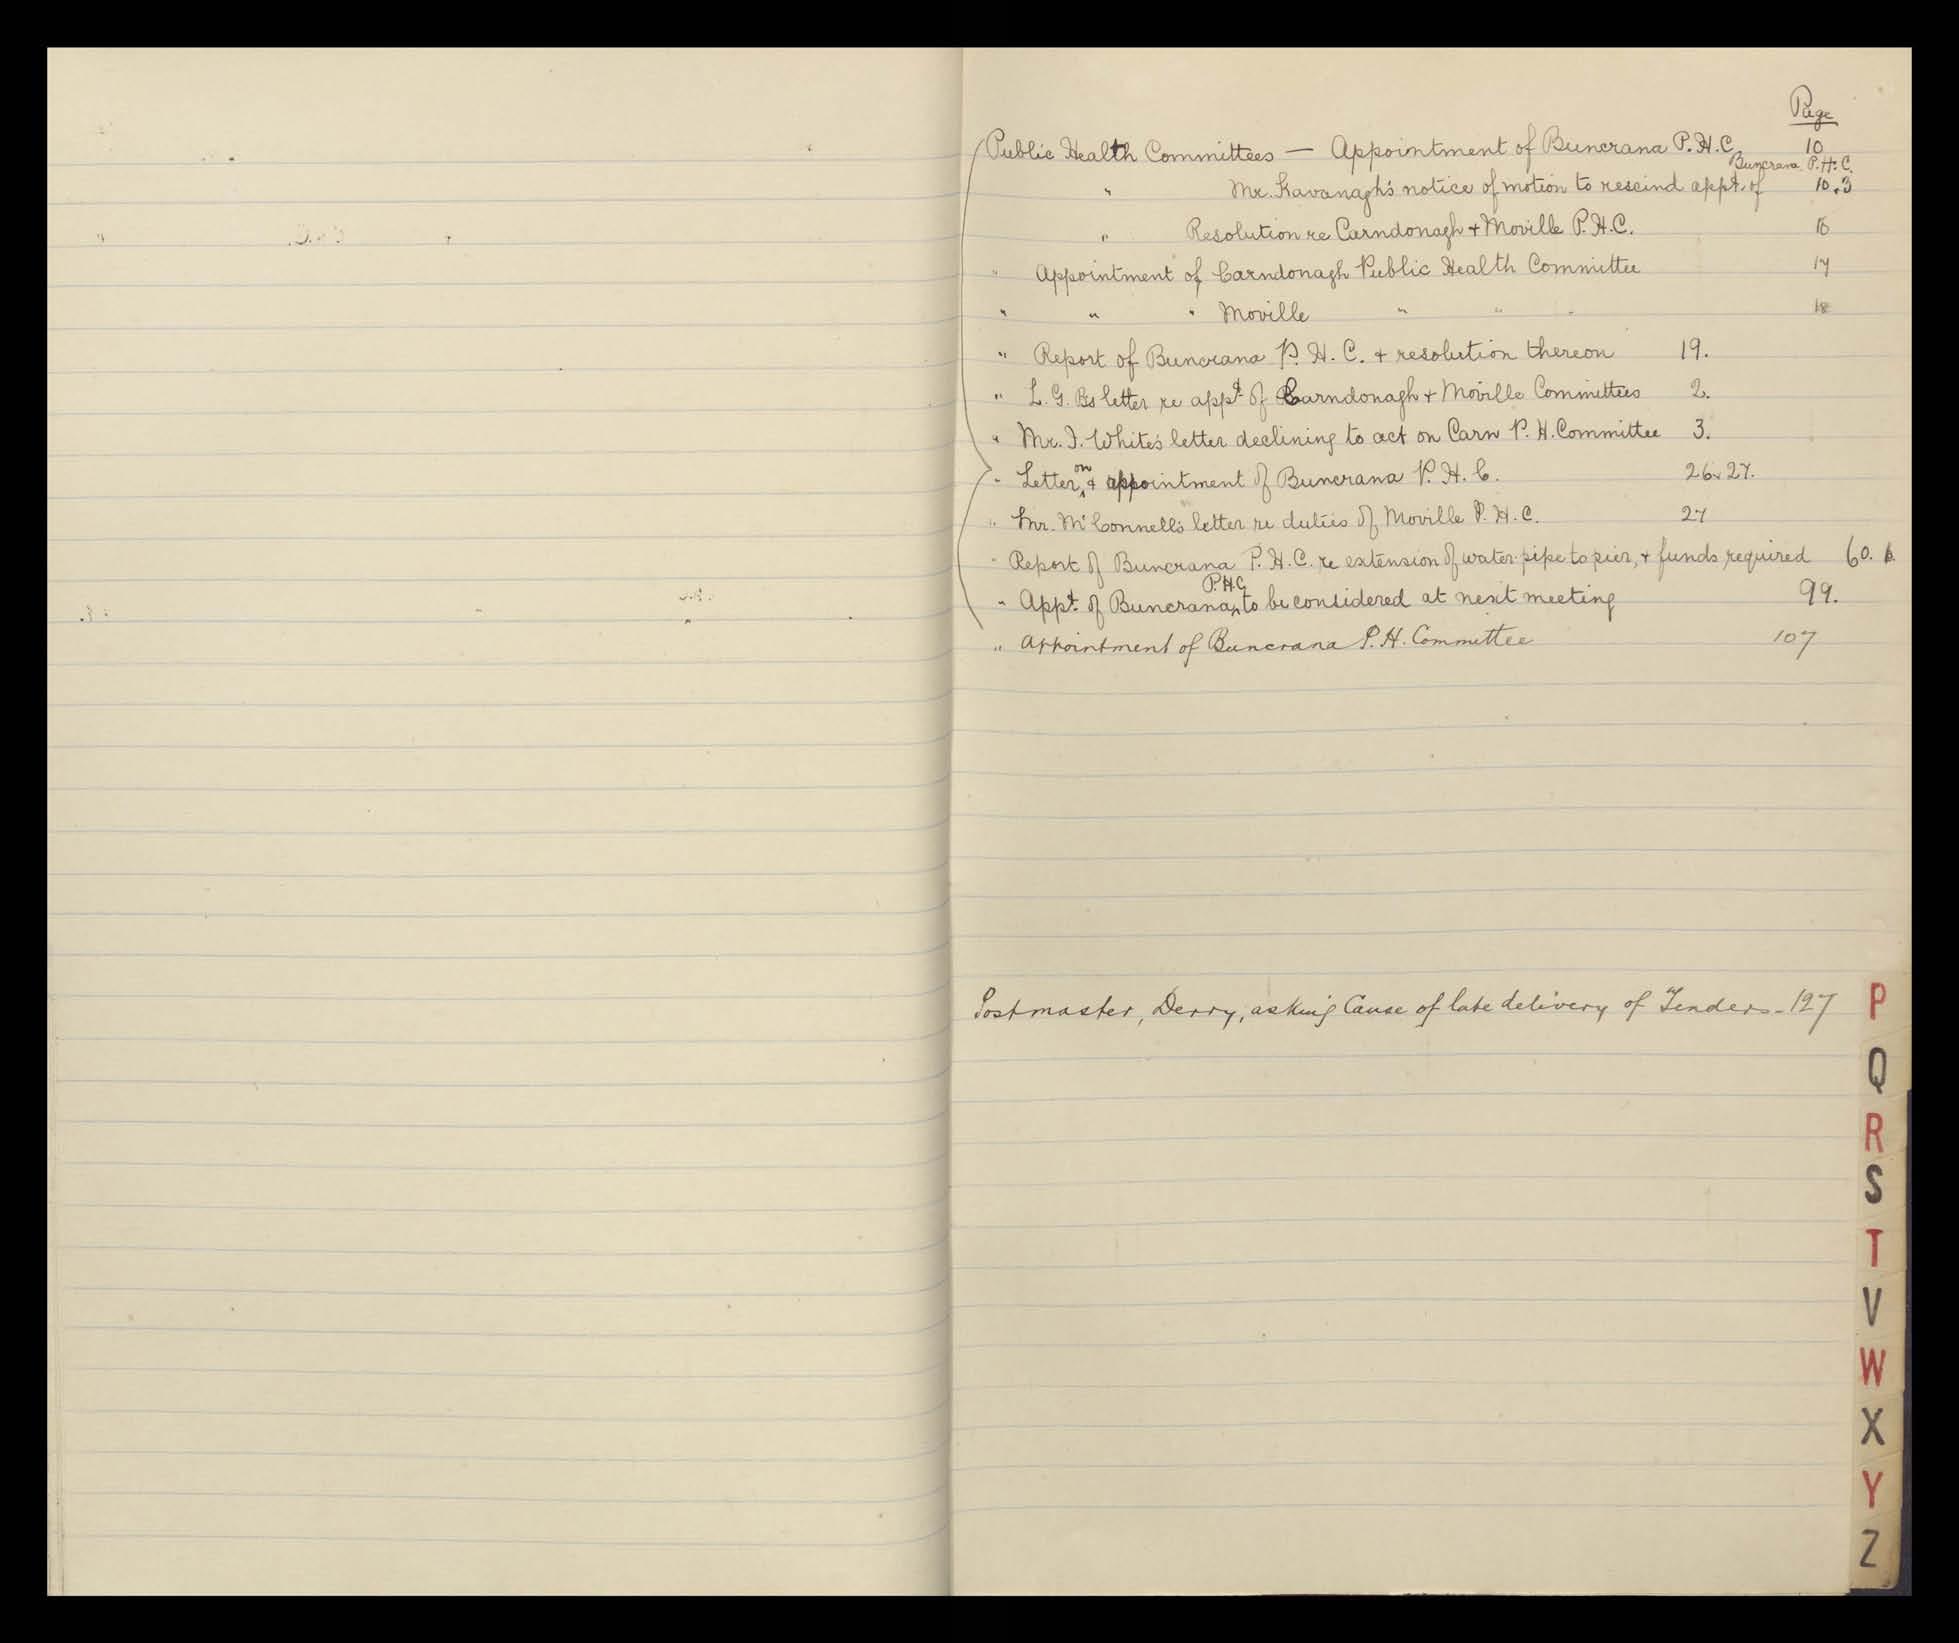 Page
Public Health Committees — Appointment of Buncrana P.H.C. 10
" Mr. Kavanagh's notice of motion to rescind appt. of Buncrana P.H.C. 10.3
" Resolution re Carndonagh + Moville P.H.C. 16
" Appointment of Carndonagh Public Health Committee 17
" " " Moville " " " 18
" Report of Buncrana P. H. C. + resolution thereon 19.
" L. G. Bs letter re appt. of Carndonagh + Moville Committees 2.
" Mr. J. White's letter declining to act on Carn P. H. Committee 3.
" Letter on + appointment of Buncrana P. H. C. 26 27.
" Mr. McConnell's letter re duties of Moville P. H. C. 27
" Report of Buncrana P.H.C. re extension of water-pipe to pier, + funds required 60.
" Appt. of Buncrana P.H.C. to be considered at next meeting 99.
" Appointment of Buncrana P.H. Committee 107
Postmaster, Derry, asking Cause of late delivery of Tenders - 127
P
Q
R
S
T
V
W
X
Y
Z